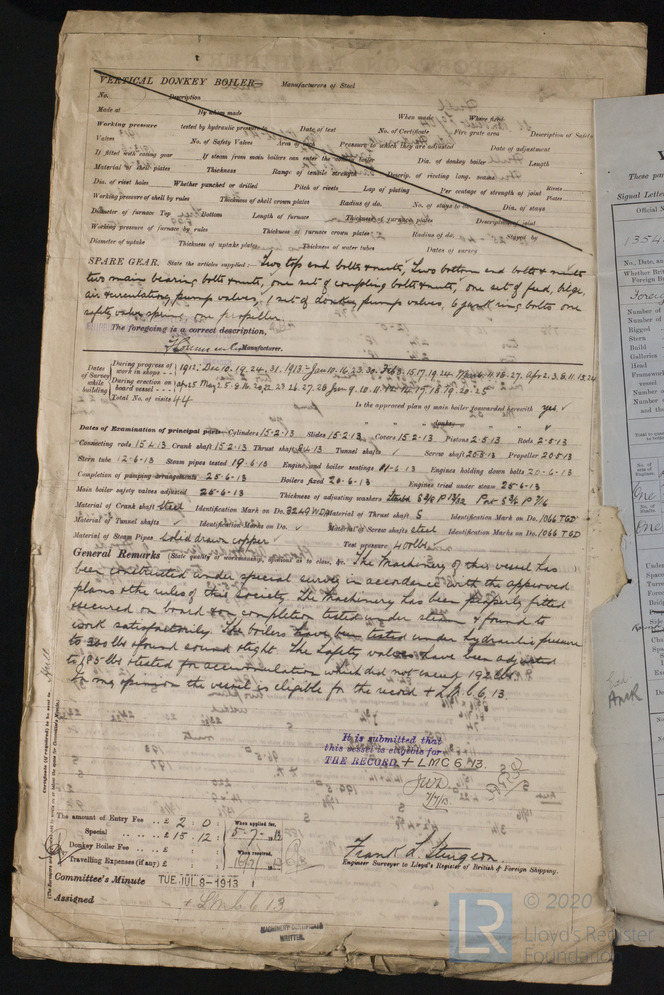 VERTICAL DONKEY BOILER— Manufacturers of Steel
No. Description
Made at By whom made When made Where fixed
Working pressure tested by hydraulic pressure to Date of test No. of Certificate Fire grate area Description of Safety
Valves No. of Safety Valves Area of each Pressure to which they are adjusted Date of adjustment
If fitted with easing gear If steam from main boilers can enter the donkey boiler Dia. of donkey boiler Length
Material of shell plates Thickness Range of tensile strength Descrip. of riveting long. seams
Dia. of rivet holes Whether punched or drilled Pitch of rivets Lap of plating Per centage of strength of joint Rivets Plates
Working pressure of shell by rules Thickness of shell crown plates Radius of do. No. of stays to do. Dia. of stays
Diameter of furnace Top Bottom Length of furnace Thickness of furnace plates Description of joint
Working pressure of furnace by rules Thickness of furnace crown plates Radius of do. Stayed by
Diameter of uptake Thickness of uptake plates Thickness of water tubes Dates of survey
SPARE GEAR. State the articles supplied:— Two top end bolts & nuts, Two bottom end bolts & nuts
two main bearing bolts & nuts, one set of coupling bolts & nuts, one set of feed, bilge,
air & circulating pump valves, 1 set of donkey pump valves, 6 junk ring bolts one
safety valve spring, one propeller
The foregoing is a correct description,
Manufacturer.
Dates of Survey while building
During progress of work in shops - - 1912: Dec 10. 19. 24. 31. 1913 - Jan 10. 16. 23. 30. Feb 8. 15. 17. 19. 24. Mar 6. 11. 18. 27. Apr 2. 3. 8. 11. 13. 24
During erection on board vessel - - -
Total No. of visits 44 Is the approved plan of main boiler forwarded herewith yes
" " " donkey " " "
Dates of Examination of principal parts—Cylinders 15.2.13 Slides 15.2.13 Covers 15.2.13 Pistons 2.5.13 Rods 2.5.13
Connecting rods 15.4.13 Crank shaft 15.2.13 Thrust shaft Tunnel shafts Screw shaft Propeller 20.5.13
Stern tube 12.6.13 Steam pipes tested 19.6.13 Engine and boiler seatings 11.6.13 Engines holding down bolts 20.6.13
Completion of pumping arrangements 25.6.13 Boilers fixed 20.6.13 Engines tried under steam 25.6.13
Main boiler safety valves adjusted 25.6.13 Thickness of adjusting washers
Material of Crank shaft steel Identification Mark on Do. 3249 WD Material of Thrust shaft S Identification Mark on Do. 1066 TGD
Material of Tunnel shafts Identification Marks on Do. Material of Screw shafts steel Identification Marks on Do. 1066 TGD
Material of Steam Pipes solid drawn copper Test pressure 400 lbs
General Remarks (State quality of workmanship, opinions as to class, &c. The Machinery of this vessel has
been constructed under special survey in accordance with the approved
plans & the rules of this Society. The Machinery has been properly fitted
& secured on board & on completion tested under steam & found to
work satisfactorily. The boilers have been tested under hydraulic pressure
to lbs & found sound & tight. The safety valves have been adjusted
to 185 lbs & tested for accumulation which did not exceed 192 lbs.
In my opinion the vessel is eligible for the record + L.M.C. 6. 13.
It is submitted that
this vessel is eligible for
THE RECORD. + LMC 6.13.
7/7/13
Certificate (if required) to be sent to Hull
The amount of Entry Fee .. £ 2 : 0 : When applied for,
Special .. .. £ 15 : 12 : 5-7-1913
Donkey Boiler Fee .. £ : : When received,
Travelling Expenses (if any) £ : :
Frank L. Sturgeon
Engineer Surveyor to Lloyd's Register of British & Foreign Shipping.
Committee's Minute TUE. JUL 8-1913
Assigned + LMC 6 13
MACHINERY CERTIFICATE
WRITTEN.
These par
Signal Letter
Official
1354
No., Date, an
Whether Brit
Foreign B
Foreig
Number of
Number of
Rigged
Stern
Build
Galleries
Head
Framework
vessel
Number o
Number o
and the
No. of
One
No. of
Shafts
One
Under
Space
Turre
Forec
Bridg
© 2020
LR
Lloyd's Register
Foundation